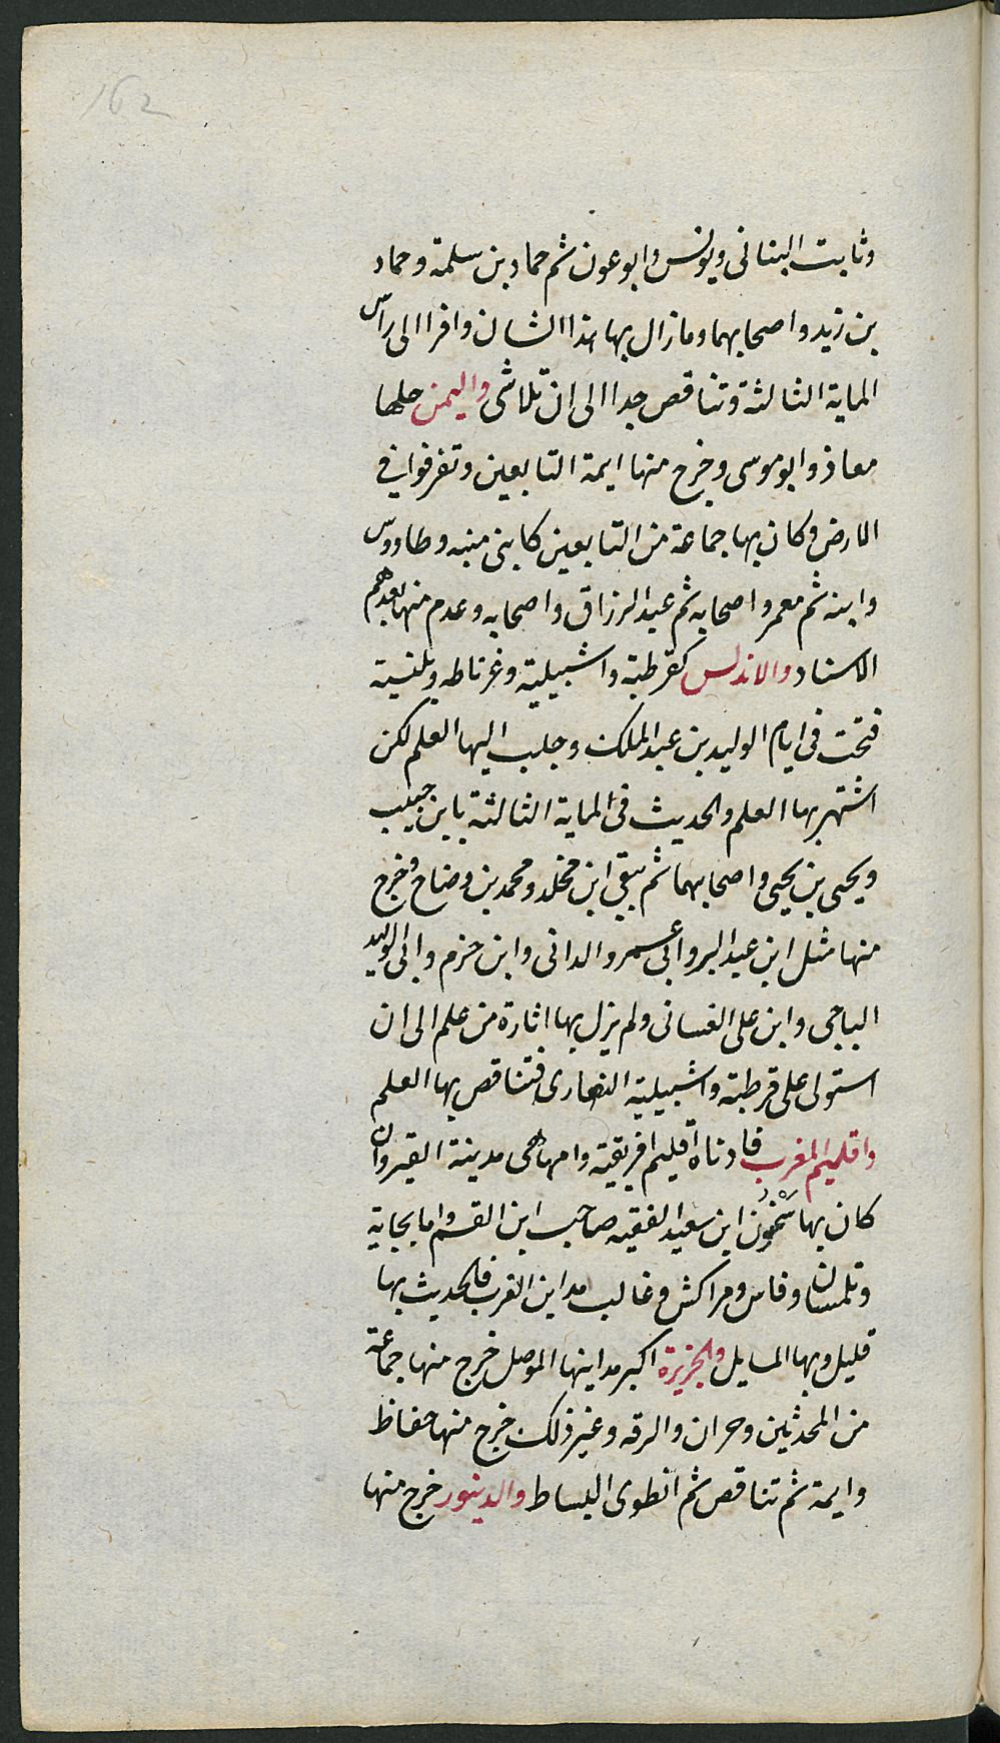 162
وثابت البنانى ويونس وابو عون ثم حماد بن سلمة وحماد
بن زيد واصحابهما ومازال بها هذا الشان وافرا الى راس
الماية الثالثة وتناقص جدا الى ان تلاشى واليمن حلها
معاذ وابو موسى وخرج منها ايمة التابعين وتفرقوا في
الارض وكان بها جماعة من التابعين كابنى منبه وطاووس
وابنه ثم معمر واصحابه ثم عبد الرزاق واصحابه وعدم منها بعدهم
الاسناد والاندلس كقرطبة واشبيلية وغرناطه وبلنسية
فتحت فى ايام الوليد بن عبد الملك وجلب اليها العلم لكن
اشتهر بها العلم والحديث فى الماية الثالثة بابن حبيب
ويحيى بن يحيى واصحابهما ثم ببقى ابن مخلد ومحمد بن وضاح وخرج
منها مثل ابن عبد البر وابى عمرو الدانى وابن حزم وابى الوليد
الباجى وابن على الغسانى ولم يزل بها اثارة من علم الى ان
استولى على قرطبة واشبيلية النصارى فتناقص بها العلم
واقليم المغرب فادناه اقليم افريقية وامها هى مدينة القيروان
كان بها سحنون ابن سعيد الفقيه صاحب ابن القسم واما بجاية
وتلمسان وفاس ومراكش وغالب مداين الغرب فالحديث بها
قليل وبها المسايل والجزيرة اكبر مداينها الموصل خرج منها جماعة
من المحدثين وحران والرقه وغير ذلك خرج منها حفاظ
وايمة ثم تناقص ثم انطوى البساط والدينور خرج منها